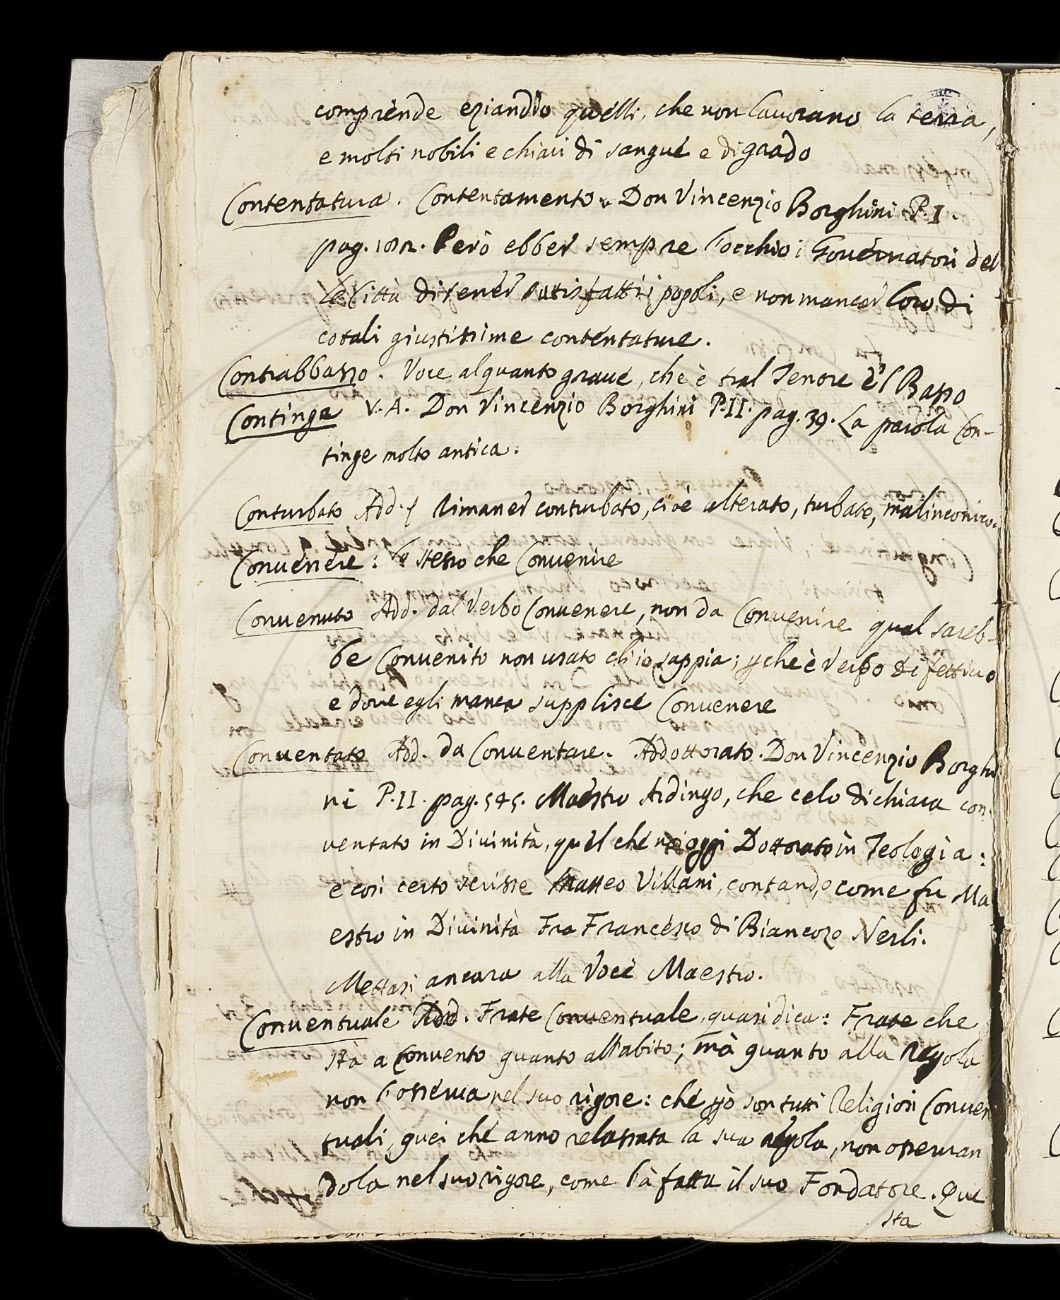 comprende eziandio quelli, che non lavorano la terra,
e molti nobili e chiari di sangue e di grado
Contentatura. Contentamento. Don Vincenzio Borghini P.I
pag. Però ebber sempre l'occhio i Governatori del
le Città di tener satisfatti i popoli, e non mancar loro di
cotali giustissime contentature.
Contrabbasso. Voce alquanto grave, che è tral Tenore e'l Basso
Continge V.A. Don Vincenzio Borghini P.II. pag. 39. La parola Con-
tinge molto antica.
Conturbato Add. Rimaner conturbato, cioè alterato, turbato, malinconico.
Convenere: Lo stesso che Convenire
Convenuto Add. dal Verbo Convenere, non da Convenire qual sareb-
be Convenito non usato ch'io sappia; che è Verbo difettivo
e dove egli manca supplisce Convenere
Conventato Add. da Conventare. Addottorato. Don Vincenzio Borghi
ni P.II. pag. 545. Maestro Ardingo, che celo dichiara con-
ventato in Divinità, quel che noi oggi Dottorato in Teologia:
e così certo scrisse Matteo Villani, contando come fu Ma
estro in Divinità Fra Francesco di Biancozo Nerli.
Mettasi ancora alla Voce Maestro.
Conventuale Add. Frate Conventuale, quasi dica: Frate che
stà a Convento quanto all'abito; mà quanto alla Regola
non l'osserva nel suo rigore: che son tutti Religiosi Conven
tuali, quei che anno relassata la sua regola, non osservan
dola nel suo rigore, come l'à fatta il suo Fondatore. Que
sta